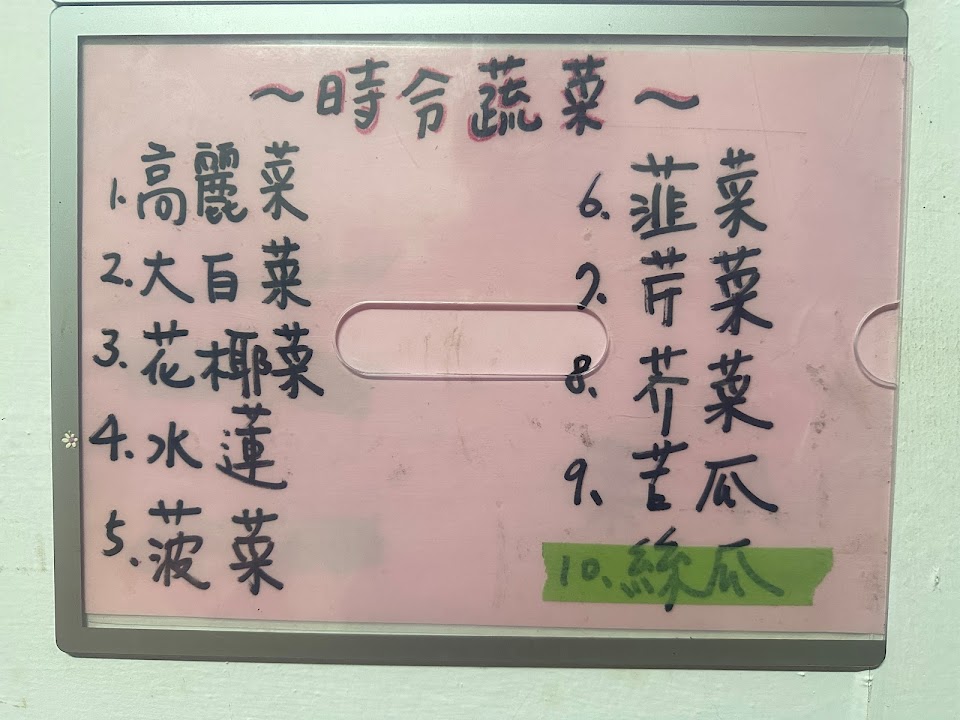 ~時令蔬菜~
1.高麗菜
2.大白菜
3.花椰菜
4.水蓮
5.菠菜
6.韮菜
7.芹菜
8.芥菜
9.苦瓜
10.絲瓜